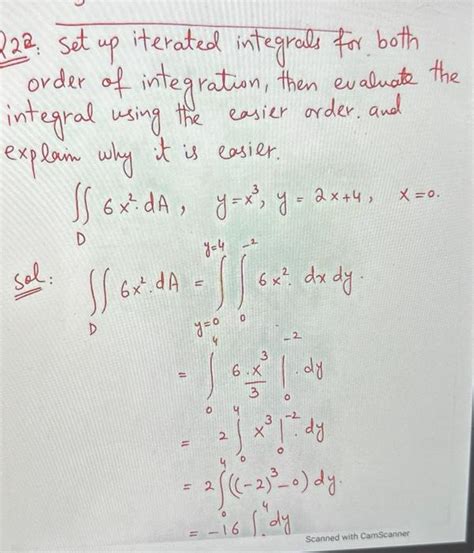 Q22: Set up iterated integrals for both
order of integration, then evaluate the
integral using the easier order. and
explain why it is easier.
∬_D 6x². dA , y=x³, y = 2x+4, x=0.
Sol: ∬_D 6x². dA = ∫_{y=0}^{y=4} ∫_0^{-2} 6x². dx dy.
= ∫_0^4 6.x³/3 |_0^{-2} . dy
= 2∫_0^4 x³|_0^{-2}. dy
= 2∫_0^4 ((-2)³-0) dy.
= -16 ∫_0^4 dy
Scanned with CamScanner